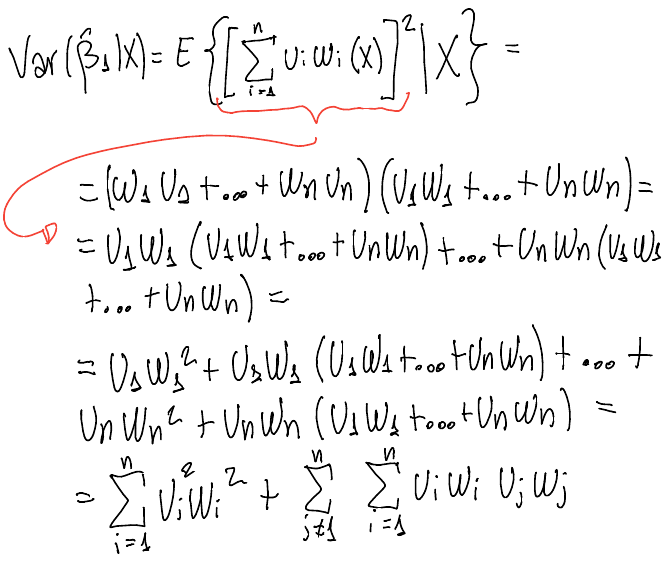 Var(β̂₁|X) = E{[∑ᵢ₌₁ⁿ Uᵢ Wᵢ (X)]² | X} =
= (W₁ U₁ + ... + Wₙ Uₙ) (U₁ W₁ + ... + Uₙ Wₙ) =
= U₁ W₁ (U₁ W₁ + ... + Uₙ Wₙ) + ... + Uₙ Wₙ (U₁ W₁
+ ... + Uₙ Wₙ) =
= U₁ W₁² + U₁ W₁ (U₁ W₁ + ... + Uₙ Wₙ) + ... +
Uₙ Wₙ² + Uₙ Wₙ (U₁ W₁ + ... + Uₙ Wₙ) =
= ∑ᵢ₌₁ⁿ Uᵢ² Wᵢ² + ∑ⱼ≠₁ⁿ ∑ᵢ₌₁ⁿ Uᵢ Wᵢ Uⱼ Wⱼ